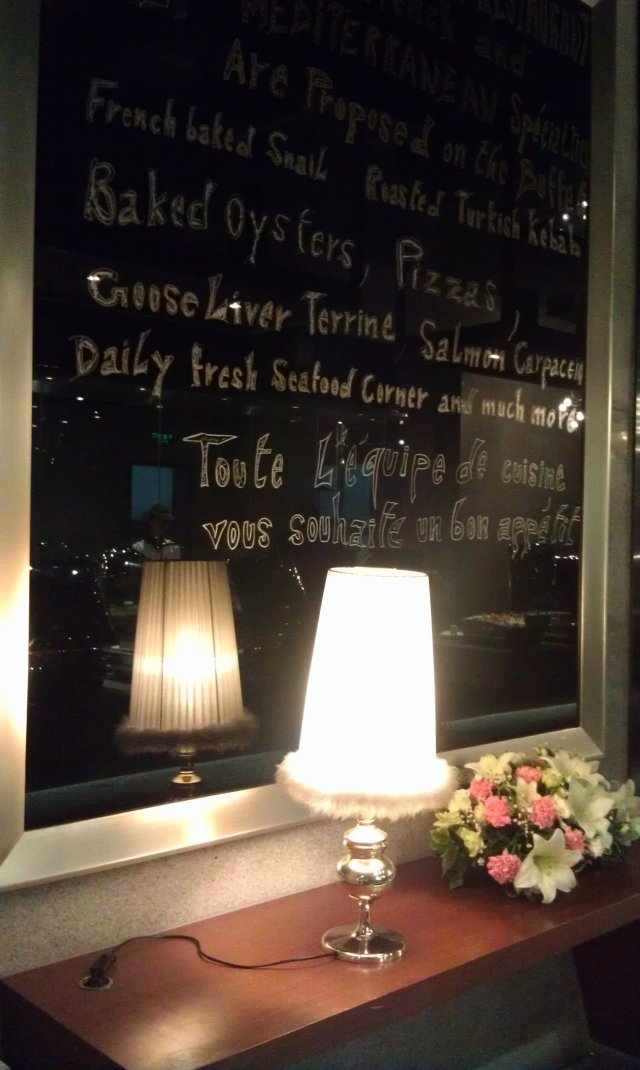 RESTAURANT
French and
MEDITERRANEAN Spécialities
Are Proposed on the Buffet
French baked Snail Roasted Turkish Kebab
Baked Oysters, Pizzas,
Goose Liver Terrine, Salmon Carpaccio
Daily fresh Seafood Corner and much more
Toute L'équipe de cuisine
vous souhaite un bon appétit